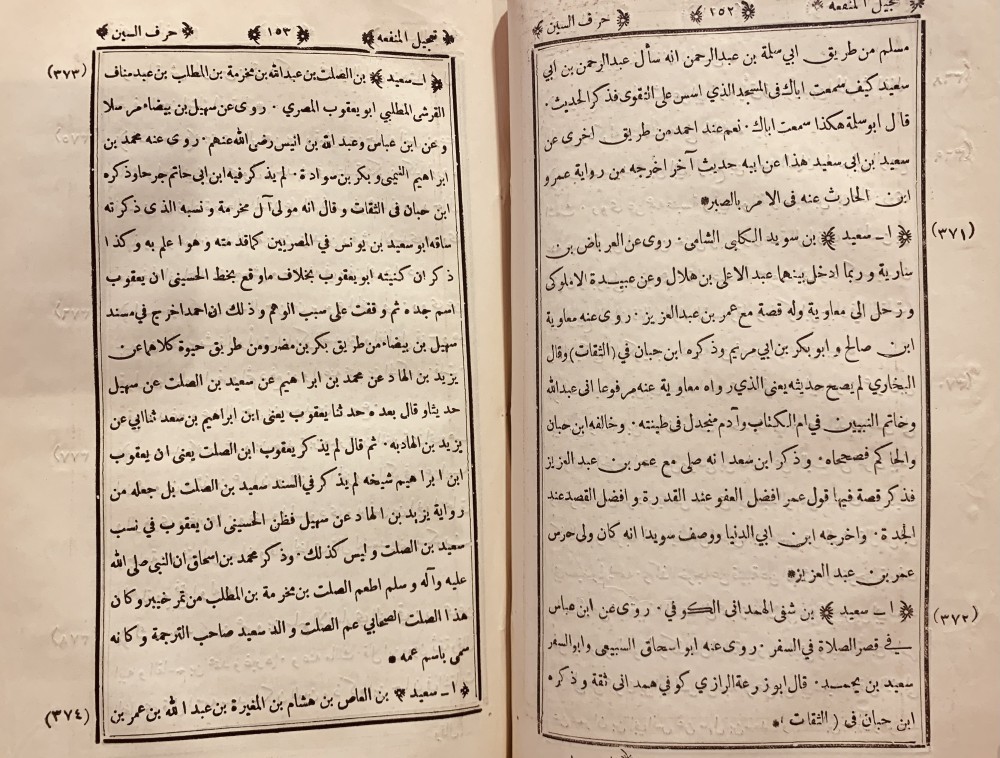 تعجيل المنفعه ﴿١٥٢﴾ حرف السين
مسلم من طريق ابي سلمة بن عبدالرحمن انه سأل عبدالرحمن بن ابي
سعيد كيف سمعت اباك فى المسجد الذي اسس على التقوى فذكر الحديث ٠
قال ابوسلمة هكذا سمعت اباك ٠ نعم عند احمد من طريق اخرى عن
سعيد بن ابى سعيد هذا عن ابيه حديث آخر اخرجه من رواية عمرو
ابن الحارث عنه فى الامر بالصبر*
(٣٧١) ﴿ ا ـ سعيد ﴾ بن سويد الكلبى الشامى ٠ روى عن العرباض بن
سارية و ربما ادخل بينهما عبد الاعلى بن هلال وعن عبيدة الاملوكى
و رحل الى معاوية وله قصة مع عمر بن عبدالعزيز ٠ روى عنه معاوية
ابن صالح و ابو بكر بن ابي مريم وذكره ابن حبان في (الثقات) وقال
البخاري لم يصح حديثه يعنى الذي رواه معاوية عنه مرفوعا انى عبدالله
وخاتم النبيين في ام الكتاب وآدم منجدل فى طينته ٠ وخالفه ابن حبان
والحاكم فصححاه ٠ و ذكر ابن سعد انه صلى مع عمر بن عبد العزيز
فذكر قصة فيها قول عمر افضل العفو عند القدرة و افضل القصد عند
الجدة ٠ واخرجه ابن ابي الدنيا ووصف سويدا انه كان ولى حرس
عمر بن عبد العزيز*
(٣٧٢) ﴿ ا ـ سعيد ﴾ بن شفى الهمدانى الكوفي ٠ روى عن ابن عباس
في قصر الصلاة في السفر ٠ روى عنه ابو اسحاق السبيعى وابو السفر
سعيد بن يحمد ٠ قال ابو زرعة الرازي كوفي همدانى ثقة و ذكره
ابن حبان فى ( الثقات )*
تعجيل المنفعه ﴿١٥٣﴾ حرف السين
(٣٧٣) ﴿ ا ـ سعيد ﴾ بن الصلت بن عبدالله بن مخرمة بن المطلب بن عبد مناف
القرشى المطلبي ابو يعقوب المصري ٠ روى عن سهيل بن بيضاء مرسلا
وعن ابن عباس وعبد الله بن انيس رضى الله عنهم ٠ روى عنه محمد بن
ابراهيم التيمى وبكر بن سوادة ٠ لم يذكر فيه ابن ابى حاتم جرحا وذكره
ابن حبان فى الثقات و قال انه مولى آل مخرمة و نسبه الذى ذكرته
ساقه ابو سعيد بن يونس في المصريين كما قدمته و هو اعلم به و كذا
ذكر ان كنيته ابو يعقوب بخلاف ما وقع بخط الحسيني ان يعقوب
اسم جده ثم وقفت على سبب الوهم و ذلك ان احمد اخرج في مسند
سهيل بن بيضاء من طريق بكر بن مضر ومن طريق حيوة كلاهما عن
يزيد بن الهاد عن محمد بن ابراهيم عن سعيد بن الصلت عن سهيل
حديثا و قال بعده حدثنا يعقوب يعنى ابن ابراهيم بن سعد ثنا ابي عن
يزيد بن الهاد به ٠ ثم قال لم يذكر يعقوب ابن الصلت يعنى ان يعقوب
ابن ابراهيم شيخه لم يذكر في السند سعيد بن الصلت بل جعله من
رواية يزيد بن الهاد عن سهيل فظن الحسينى ان يعقوب في نسب
سعيد بن الصلت و ليس كذلك ٠ وذكر محمد بن اسحاق ان النبي صلى الله
عليه وآله وسلم اطعم الصلت بن مخرمة بن المطلب من تمر خيبر وكان
هذا الصلت الصحابي عم الصلت والد سعيد صاحب الترجمة و كانه
سمى باسم عمه *
(٣٧٤) ﴿ ا ـ سعيد ﴾ بن العاص بن هشام بن المغيرة بن عبد الله بن عمر بن